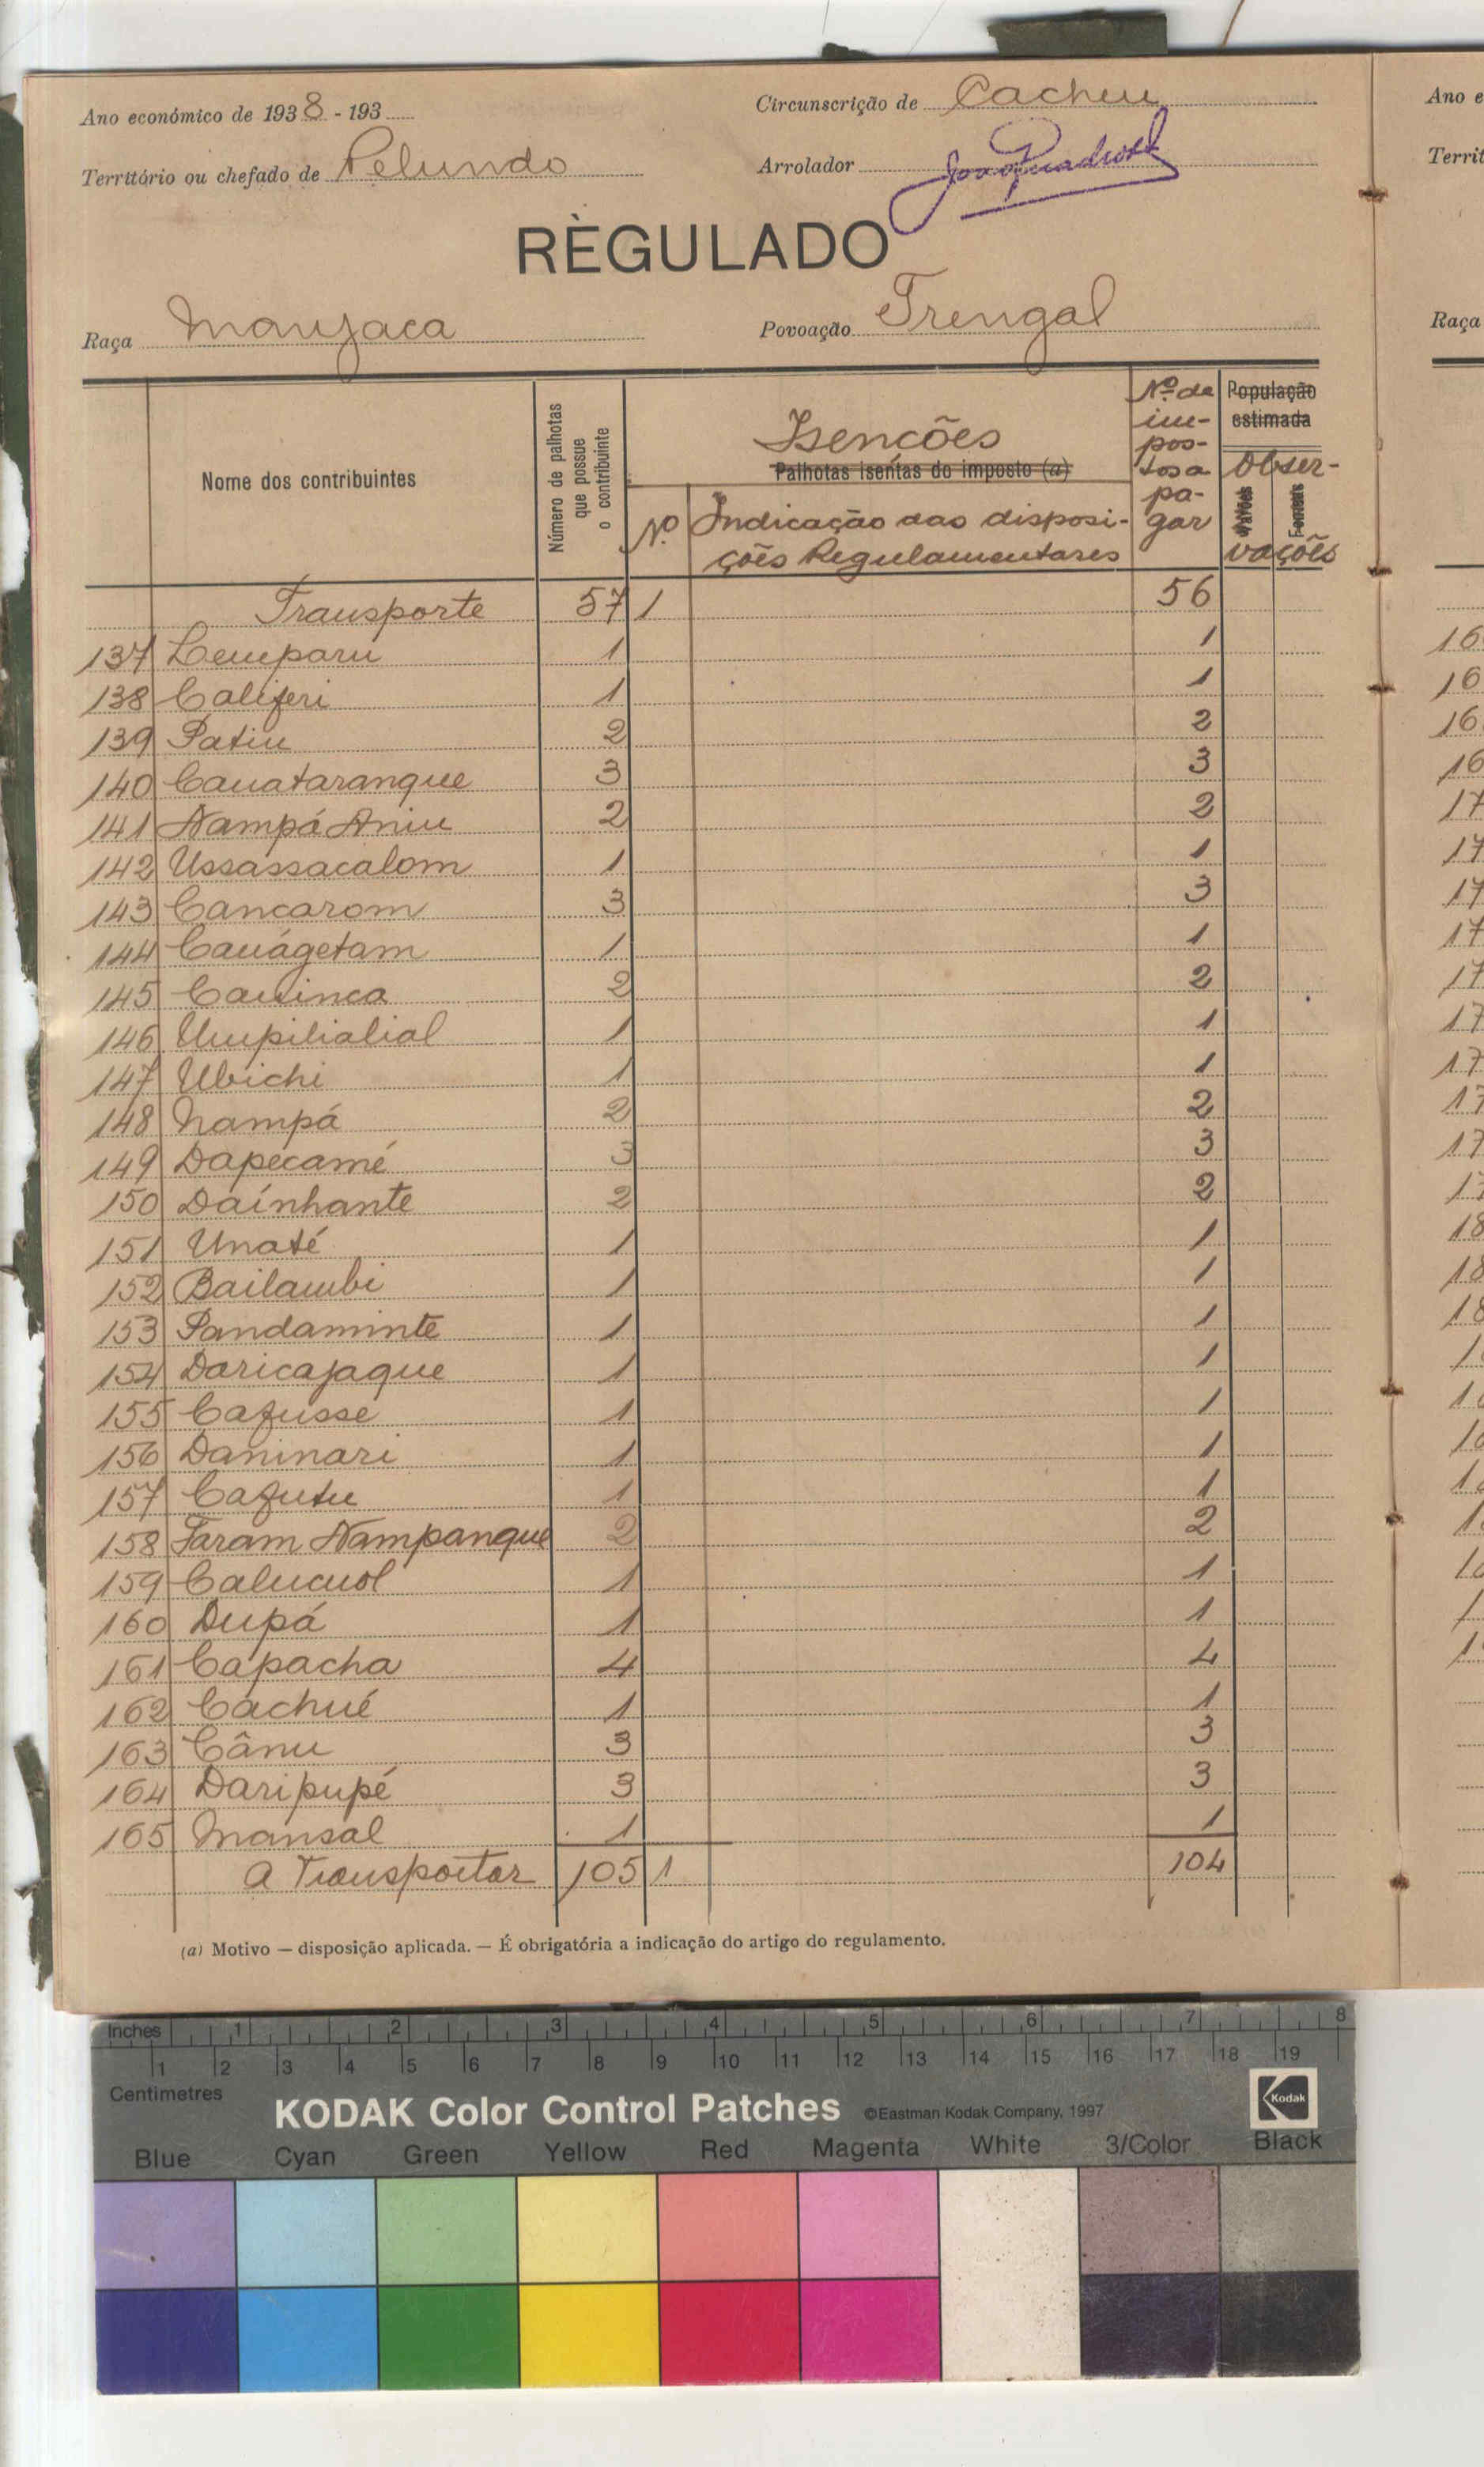 Ano económico de 1938 - 193
Circunscrição de Cacheu
Território ou chefado de Pelundo
Arrolador
RÈGULADO
Raça Manjaca
Povoação Trengal
Nome dos contribuintes
Número de palhotas que possue o contribuinte
Isenções
Palhotas isentas do imposto (a)
Nº
Indicação das disposi-
ções Regulamentares
Nº de im-
pos-
tos a
pa-
gar
População estimada
Obser-
vações
Varões
Femeas
Transporte 57 1 56
137 Lemparu 1 1
138 Califeri 1 1
139 Patiu 2 2
140 Cauataranque 3 3
141 Nampá Aniu 2 2
142 Ussássacalom 1 1
143 Cancarom 3 3
144 Cauágetam 1 1
145 Cauinca 2 2
146 Umpilialial 1 1
147 Ubichi 1 1
148 Nampá 2 2
149 Dapecamé 3 3
150 Daínhante 2 2
151 Unaté 1 1
152 Bailambi 1 1
153 Pandaminte 1 1
154 Daricajaque 1 1
155 Cafusse 1 1
156 Daninari 1 1
157 Cafutu 1 1
158 Faram Nampanque 2 2
159 Calucuol 1 1
160 Dupá 1 1
161 Capacha 4 4
162 Cachué 1 1
163 Cânu 3 3
164 Daripupé 3 3
165 Mansal 1 1
A Transportar 105 1 104
(a) Motivo — disposição aplicada. — É obrigatória a indicação do artigo do regulamento.
Inches 1 2 3 4 5 6 7 8
1 2 3 4 5 6 7 8 9 10 11 12 13 14 15 16 17 18 19
Centimetres
KODAK Color Control Patches ©Eastman Kodak Company, 1997 Kodak
Blue Cyan Green Yellow Red Magenta White 3/Color Black